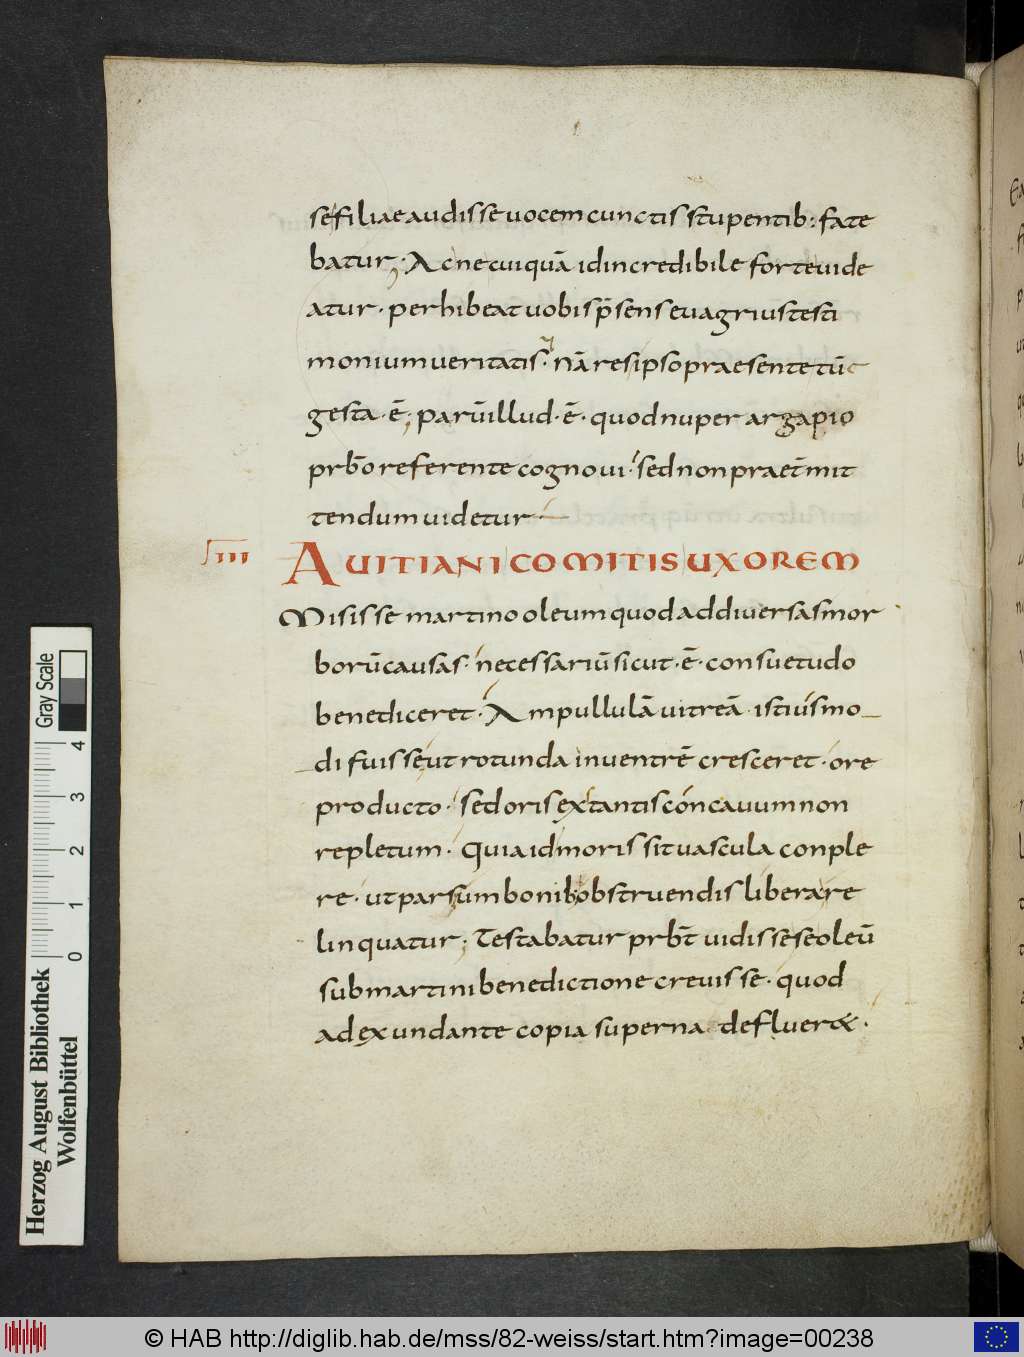 se filiae audisse uocem cunctis stupentib: fate
batur; Ac ne cuiquā id incredibile forte uide
atur · perhibeat uobis p̄sens euagrius testi
monium ueritatis · nā res ipso praesente tūc
gesta · ē; parū illud · ē · quod nuper argapio
prb̄o referente cognoui · sed non praet̄mit
tendum uidetur
III AUITIANI COMITIS UXOREM
Misisse martino oleum quod ad diuersas mor
borū causas · necessariū sicut · ē · consuetudo
benediceret · Ampullulā uitreā istiusmo
di fuisse ut rotunda in uentrē cresceret · ore
producto · sed oris extantis concauum non
repletum · Quia id moris sit uascula conple
re · ut pars umbonib obstruendis libera re
linquatur; Testabatur prb̄t uidisse se oleū
sub martini benedictione creuisse · quod
adexundante copia superna defluer& ·
Gray Scale
4 3 2 1 0
Herzog August Bibliothek
Wolfenbüttel
© HAB http://diglib.hab.de/mss/82-weiss/start.htm?image=00238